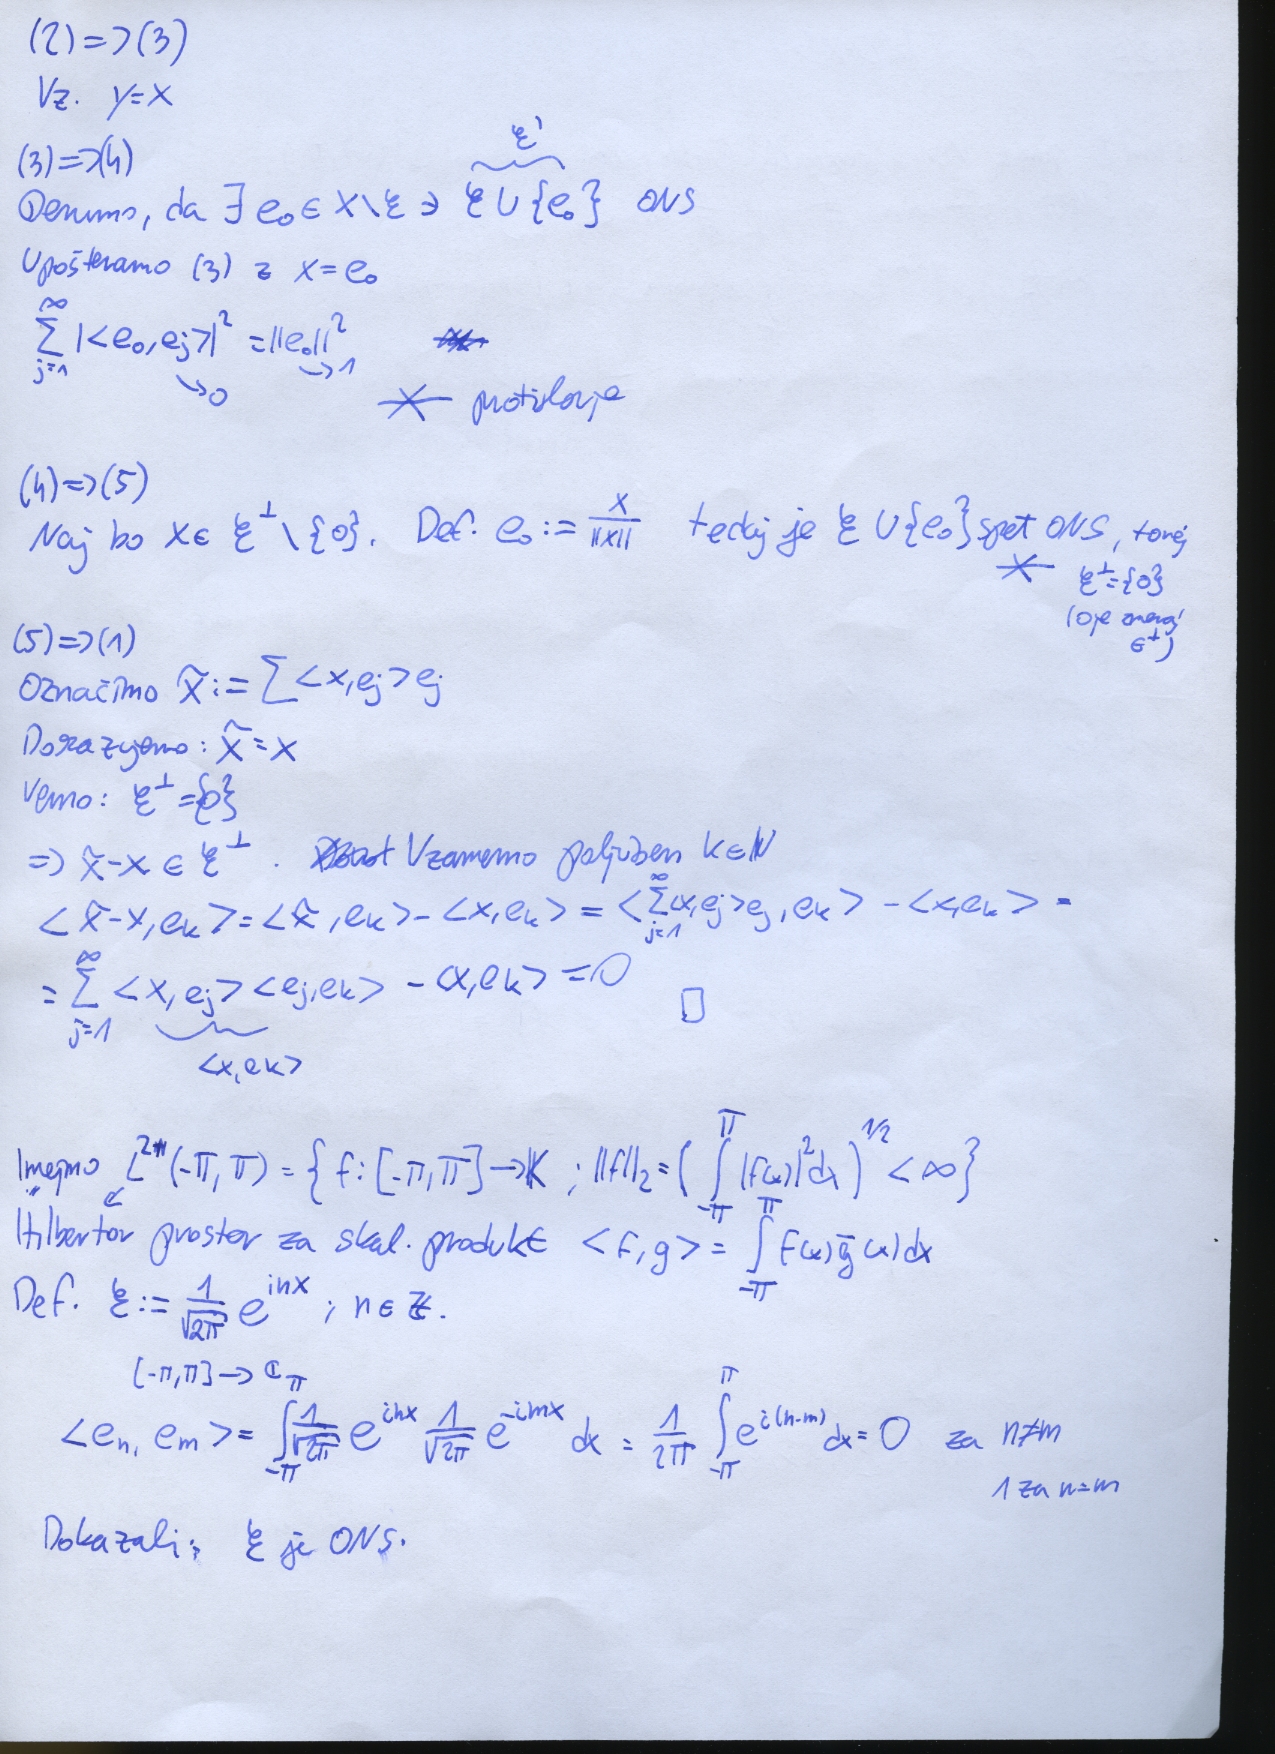 (2) => (3)
Vz. y=x
(3) => (4)
ξ'
Denimo, da ∃ e₀ ∈ X \ ξ ∋ ξ ∪ {e₀} ONS
Upoštevamo (3) z x = e₀
∑_{j=1}^{∞} |<e₀, e_j>|² = ||e₀||²
↘0 ↘1
protislovje
(4) => (5)
Naj bo x ∈ ξ^⊥ \ {0}. Def. e₀ := x/||x|| tedaj je ξ ∪ {e₀} spet ONS, torej
ξ^⊥ = {0}
(0 je zmeraj
∈^⊥)
(5) => (1)
Označimo x̃ := ∑ <x, e_j> e_j
Dokazujemo: x̃ = x
Vemo: ξ^⊥ = {0}
=> x̃ - x ∈ ξ^⊥. Vzamemo poljuben k ∈ ℕ
<x̃ - x, e_k> = <x̃, e_k> - <x, e_k> = <∑_{j=1}^{∞} <x, e_j> e_j, e_k> - <x, e_k> =
= ∑_{j=1}^{∞} <x, e_j> <e_j, e_k> - <x, e_k> = 0 □
<x, e_k>
Imejmo L² (-π, π) = { f: [-π, π] → K ; ||f||₂ = ( ∫_{-π}^{π} |f(x)|² dx )^{1/2} < ∞}
Hilbertov prostor za skal. produkt <f, g> = ∫_{-π}^{π} f(x) ḡ(x) dx
Def. ξ := 1/√2π e^{inx} ; n ∈ Z.
[-π, π] → ℂ
<e_n, e_m> = ∫_{-π}^{π} 1/√2π e^{inx} 1/√2π e^{-imx} dx = 1/2π ∫_{-π}^{π} e^{i(n-m)} dx = 0 za n≠m
1 za n=m
Dokazali: ξ je ONS.